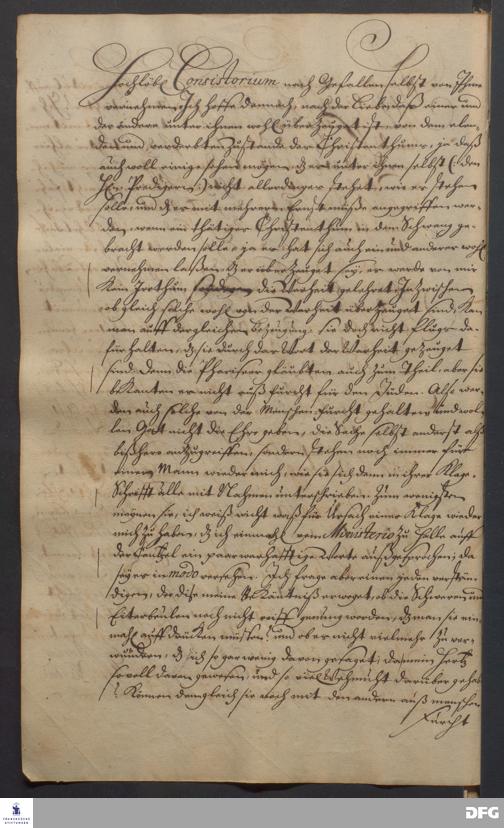 Hochlöbl Consistorium nach Gefallen selbst von Ihnen
vernehmen. Ich hoffe dennoch, nach der Liebe, daß einer und
der andere unter ihnen wohl überzeuget ist, von dem elen-
den und verderbten Zustande des Christenthums, ja daß
auch woll einige sehen mögen, dz es unter Ihnen selbst (den
Hn. Predigern) nicht allerdings stehet, wie es stehen
solle, und dz es mit mehrerm Ernst müße angegriffen wer-
den, wenn ein thätiges Christenthum in den Schwang ge-
bracht werden solle, ja es hat sich auch ein und anderer wohl
vernehmen laßen, Er überzeuget sey, es werde von mir
kein Irrthum sondern die Warheit gelehret. Inzwischen
obgleich solche wohl von der Warheit überzeuget sind, kan
man auff dergleichen bezeugung sie doch nicht flugs da-
für halten, dz sie durch das Wort der Warheit gezeuget
sind. Denn die Phariseer gläubten auch zum Theil, aber sie
bekanten es nicht auß furcht für den Jüden. Also wer-
den auch solche von der Menschen furcht gehalten und wol-
len Gott nicht die Ehre geben, die Sache selbst anderst alß
bißhero anzugreiffen, sondern, stehen noch immer für
einen Mann wieder mich, wie sie sich denn in ihrer Klage-
Schrifft alle mit Nahmen unterschrieben. Zum wenigsten
mögen sie, ich weiß nicht waß für Ursach einer Klage wieder
mich zu haben, dz ich einmahl vom Ministerio zu Halle auff
der Cantzel ein paar warhafftige Worte außgesprochen; da
sey es in modo versehen. Ich frage aber einen jeden verstän-
digen, der diese meine Bekäntniß erweget, ob die Schweren und
Eiterbeulen noch nicht reiff genung worden, dz man sie ein-
mahl auffdrücken müsten? und ob es nicht vielmehr zu ver-
wundern, dz ich so gar wenig davon gesaget; da mein Hertz
so voll davon gewesen, und so viel Wehmuht darüber gehabt
? Können demgleich sie doch mit den andern auß menschen
Furcht
FRANCKESCHE STIFTUNGEN
DFG